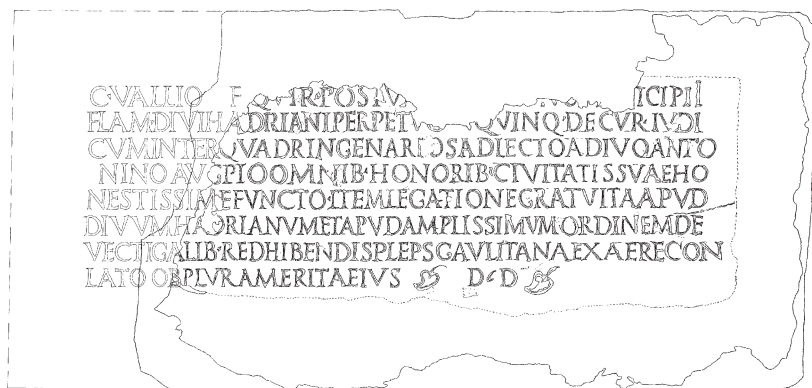 C·VALLIO F QVIR·POSTV ICIPII
FLAM·DIVIHADRIANIPERPETV QVINQ·DECVRIVDI
CVMINTERQVADRINGENARIOSADLECTOADIVOANTO
NINOAVGPIOOMNIB·HONORIB·CIVITATISSVAEHO
NESTISSIMEFVNCTO·ITEMLEGATIONEGRATVITAAPVD
DIVVMHADRIANVMETAPVDAMPLISSIMVMORDINEMDE
VECTIGALIB·REDHIBENDISPLEPSGAVLITANAEXAERECON
LATOOBPLVRAMERITAEIVS D·D